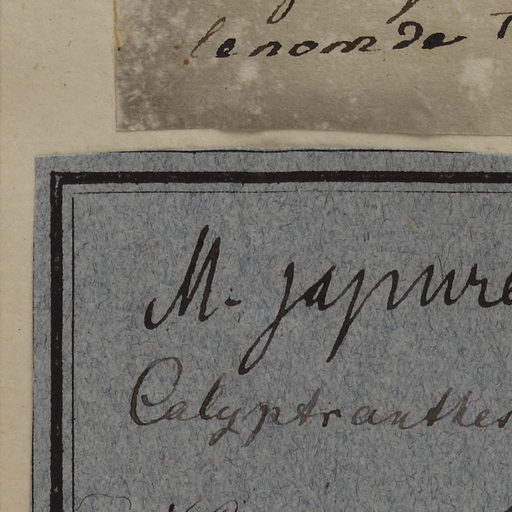 le nom de
M. japure
Calyptranthes